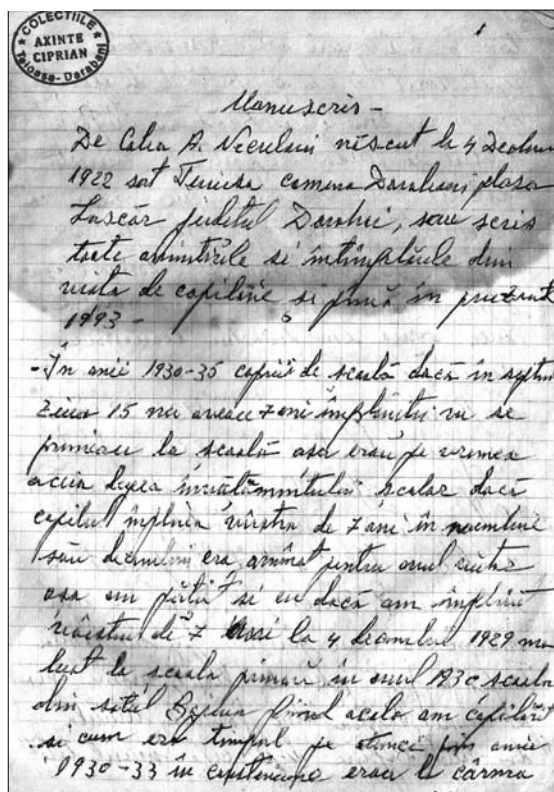 COLECTIILE
AXINTE
CIPRIAN
Teioasa-Darabani
1
Manuscris -
De Calia A. Neculai născut la 4 Decbm
1922 sat comuna Darabani plasa
Lascăr judetul Dorohoi, sau scris
toate amintirile si întîmplările din
viata de copilărie si pînă în prezent
1993 -
- În anii 1930-35 copiii de scoală dacă în septm
ziua 15 nu aveau 7 ani împliniti nu se
primeau la scoală asa erau pe vremea
aceia legea învătămîntului scolar dacă
copilul împlinia vîrsta de 7 ani în noembrie
sau decembrie era amînat pentru anul viitor
asa am pătit si eu dacă am împlinit
de 7 la 4 decembrie 1929 ma
luat la scoala primară în anul 1930 scoala
din satul acolo am copilărit
si cum era timpul pe atunci prin anii
1930-33 în erau la cârma